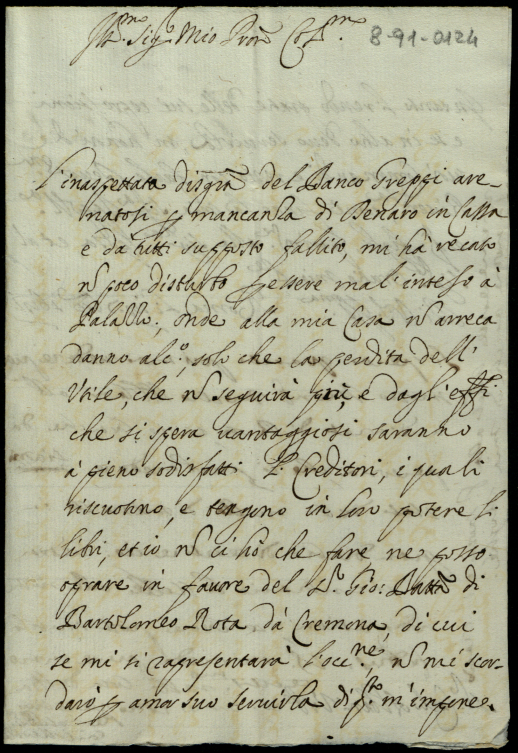 Ill.mo Sig.r Mio Pron Col.mo
8-91-0124
L'inaspettata disgrã del Banco Greppi are-
natosi p mancanza di Denaro in Cassa
e da tutti supposto fallito, mi hà recato
ñ poco disturbo p essere mal'inteso à
Palazzo, onde alla mia Casa ñ arreca
danno alc.o, solo che la perdita dell'
Utile, che ñ seguirà più, e dagl'effi
che si spera vantaggiosi saranno
à pieno sodisfatti li Creditori, i quali
riscuotono, e tengono in loro potere li
libri, et io ñ ci hò che fare ne posso
oprare in favore del S.r Gio: Batta di
Bartolomeo Rota dà Cremona, di cui
se mi si rapresentarà l'occ.ne, ñ mi scor-
darò p amor suo servirla di q.to m'impone.